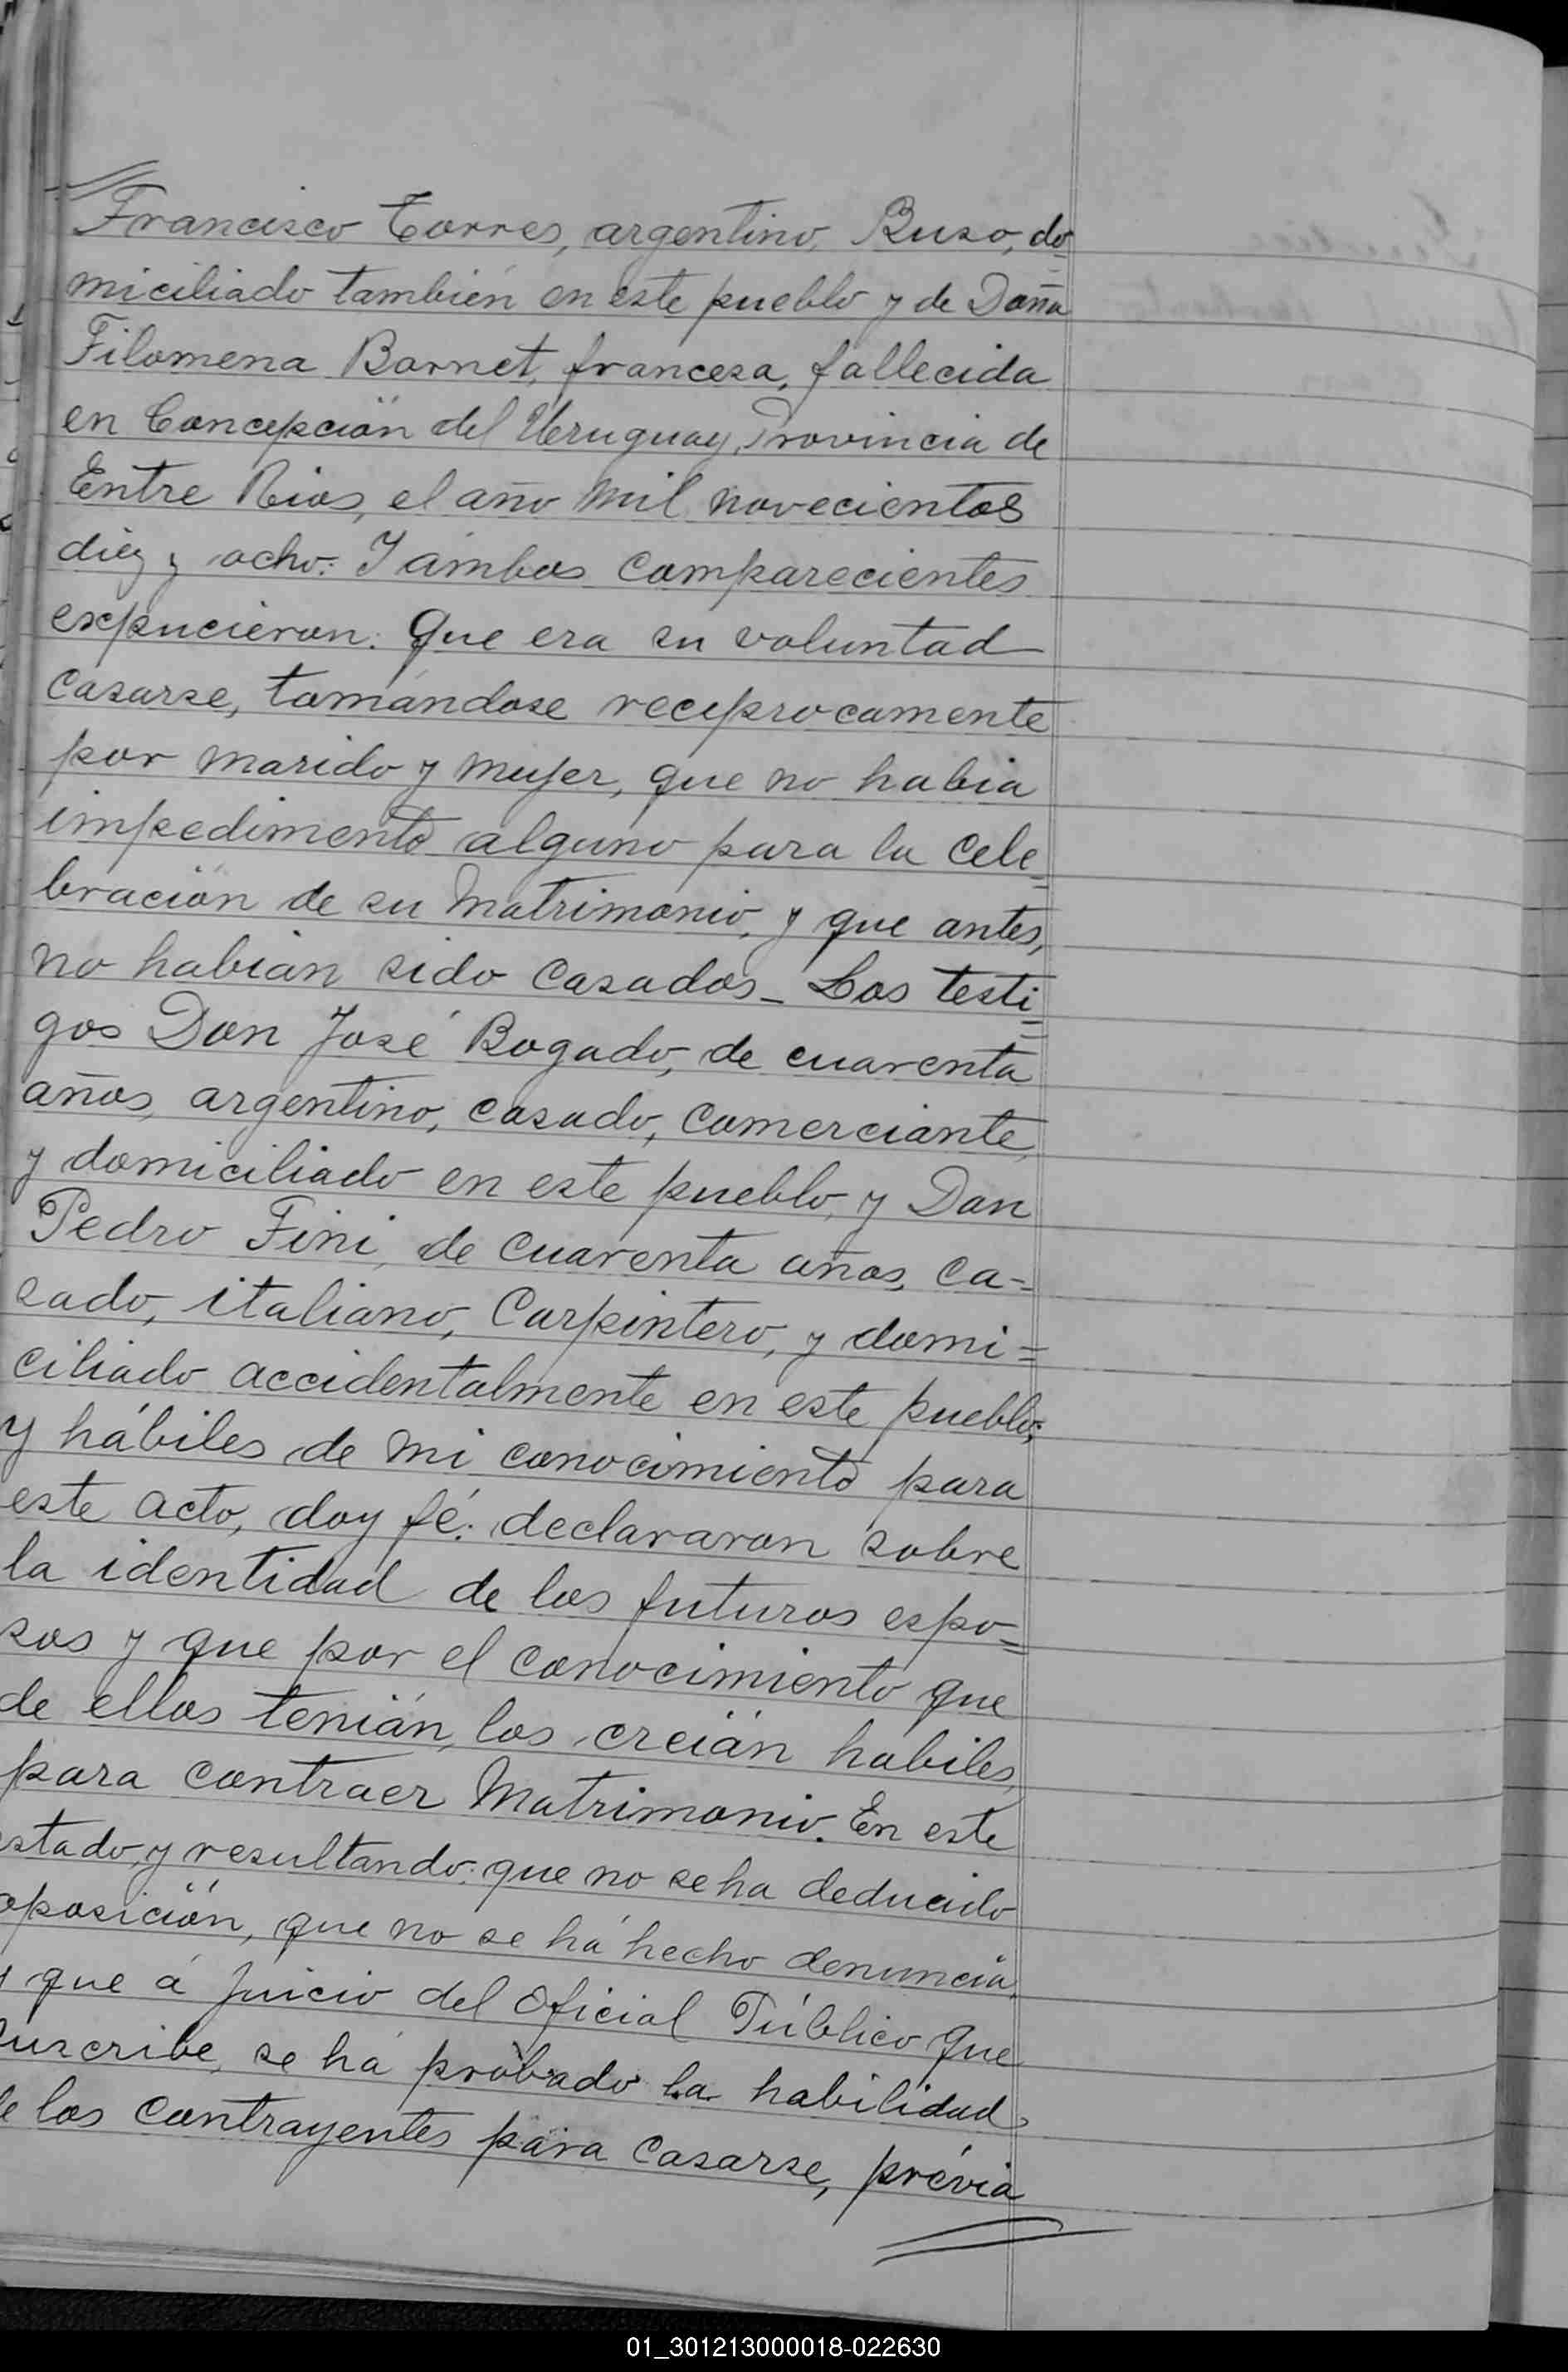 Francisco Torres, argentino, Buso, do=
miciliado también en este pueblo y de Doña
Filomena Barnet, francesa, fallecida
en Concepción del Uruguay, Provincia de
Entre Rios, el año mil novecientos
diez y ocho: Y ambos comparecientes
expucieron: Que era su voluntad
casarse, tomándose reciprocamente
por marido y mujer, que no habia
impedimento alguno para la cele=
bración de su Matrimonio, y que antes,
no habian sido casados_ Los testi=
gos Don José Bogado, de cuarenta
años, argentino, casado, comerciante,
y domiciliado en este pueblo, y Don
Pedro Fini, de cuarenta años, ca=
sado, italiano, Carpintero, y domi=
ciliado accidentalmente en este pueblo;
y hábiles de mi conocimiento para
este acto, doy fé: declararon sobre
la identidad de los futuros espo=
sos y que por el conocimiento que
de ellos tenián, los creián habiles,
para contraer Matrimonio. En este
estado, y resultando: que no se ha deducido
oposición, que no se há hecho denuncia,
y que á juicio del Oficial Público que
suscribe, se há probado la habilidad
de los contrayentes para casarse, prévia
01_301213000018-022630